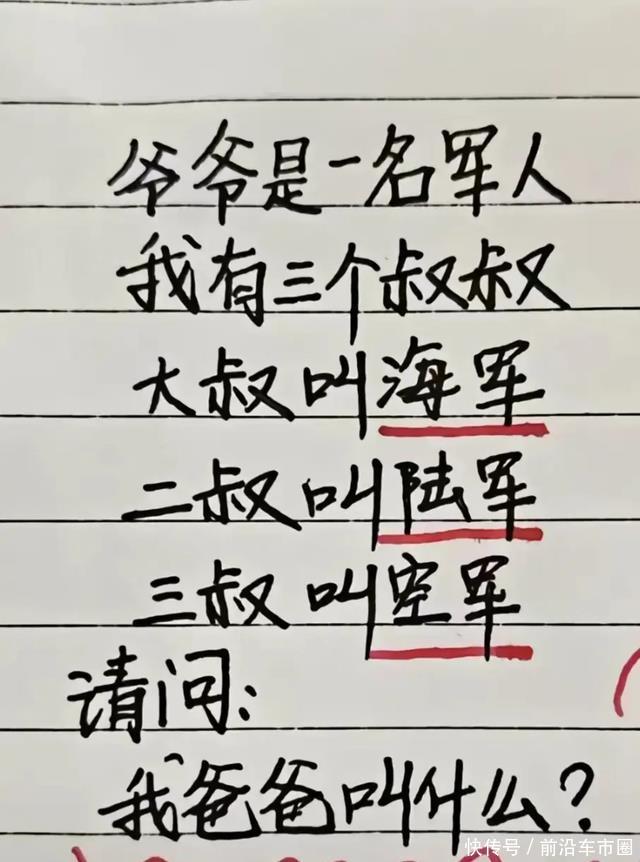 爷爷是一名军人
我有三个叔叔
大叔叫海军
二叔叫陆军
三叔叫空军
请问：
我爸爸叫什么？
快传号／前沿车市圈